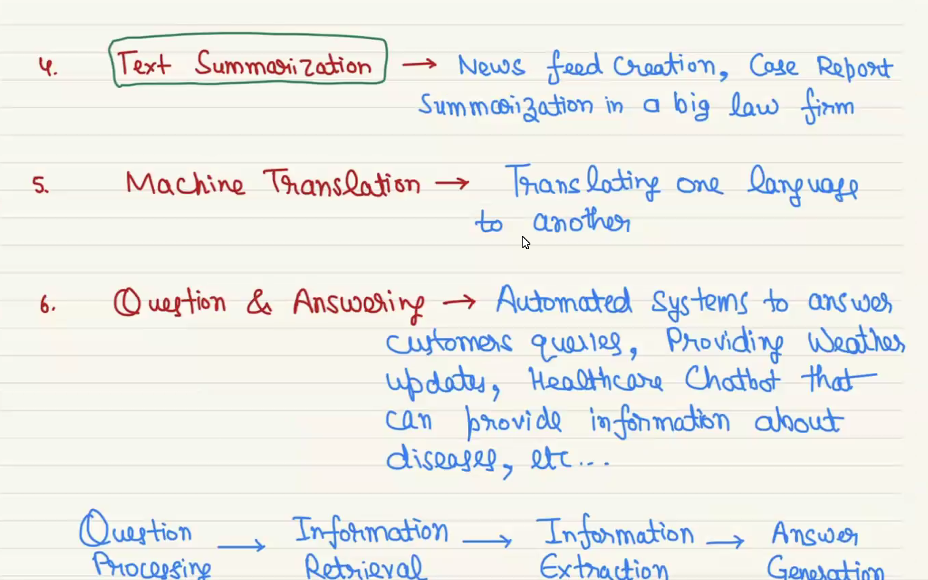 4. Text Summarization → News feed Creation, Case Report
Summarization in a big law firm
5. Machine Translation → Translating one language
to another
6. Question & Answering → Automated systems to answer
customers queries, Providing Weather
updates, Healthcare Chatbot that
can provide information about
diseases, etc...
Question → Information → Information → Answer
Processing Retrieval Extraction Generation